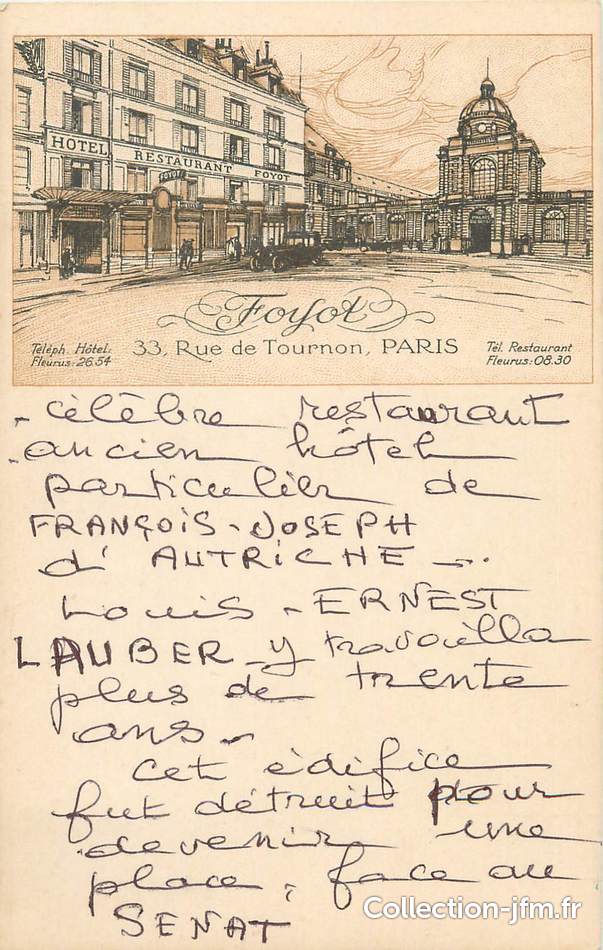 HOTEL RESTAURANT FOYOT
FOYOT
Foyot
Téléph. Hôtel: 33, Rue de Tournon, PARIS Tél. Restaurant
Fleurus: 26.54 Fleurus: 08.30
- célèbre restaurant
- ancien hôtel
particulier de
FRANÇOIS - JOSEPH
d'AUTRICHE -.
Louis - ERNEST
LAUBER - y travailla
plus de trente
ans -
Cet édifice
fut détruit pour
devenir une
place, face au
SENAT
Collection-jfm.fr